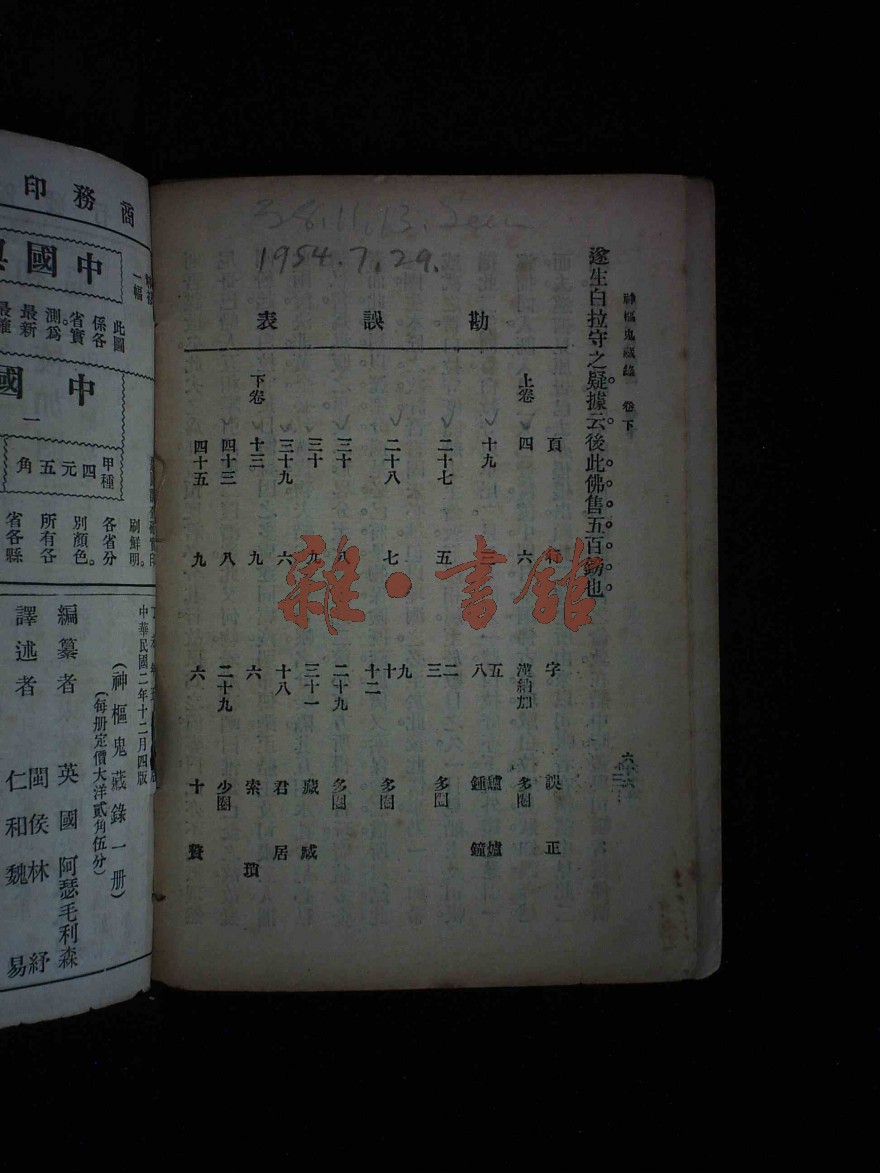 38.11.13.
1954.7.29.
神樞鬼藏錄 卷下
遂生白拉守之疑據云後此佛售五百鎊也
勘誤表
頁 行 字 誤 正
上卷 四 六 潭納加 多圈
十九 三 五 鑪 爐
八 鍾 鐘
二十七 五 二 三 多圈
二十八 七 九 十 十二 多圈
三十 八 二十九 多圈
三十 九 三十一 藏 咸
三十九 六 十八 君 居
下卷 十三 九 六 索 瑣
四十三 八 二十九 少圈
四十五 九 六 十 賛
雜·書館
商務印
中國
此圖
係各
省實
測爲
最新
最確
中國
一
甲種
四元五角
刷鮮明
各省分
別顏色
所有各
省各縣
中華民國二年十二月四版
(神樞鬼藏錄一册)
(每册定價大洋貳角伍分)
編纂者 英國 阿瑟毛利森
譯述者 閩侯林紓
仁和魏易